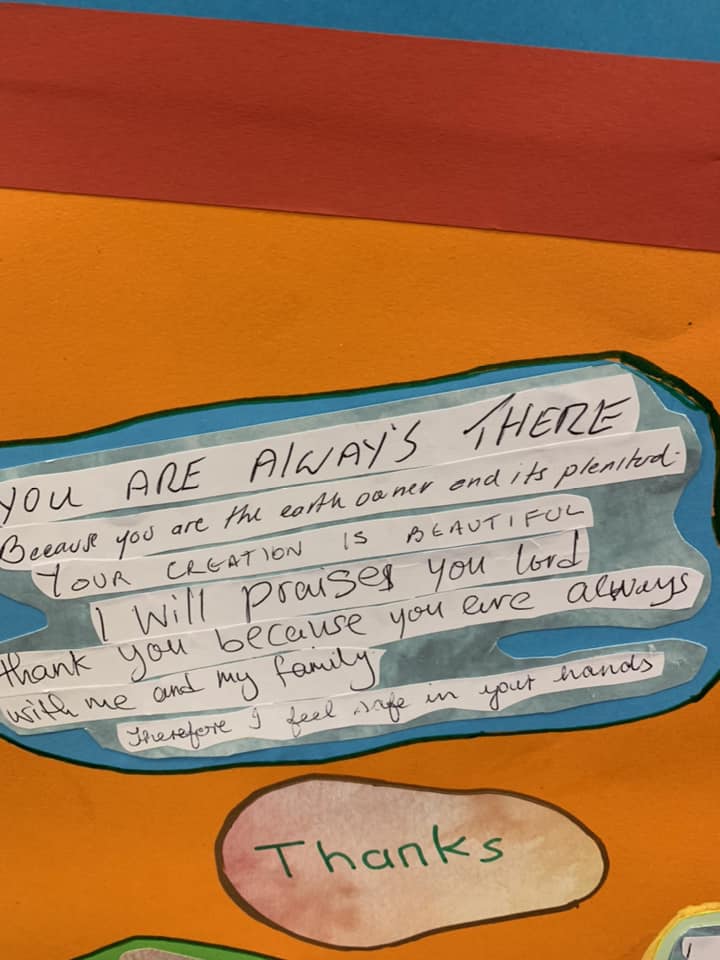 YOU ARE AlWAY'S THERE
Because you are the earth owner and its plenitud.
YOUR CREATION IS BEAUTIFUL
I Will praises you lord
thank you because you are always
with me and my family
Therefore I feel safe in your hands
Thanks